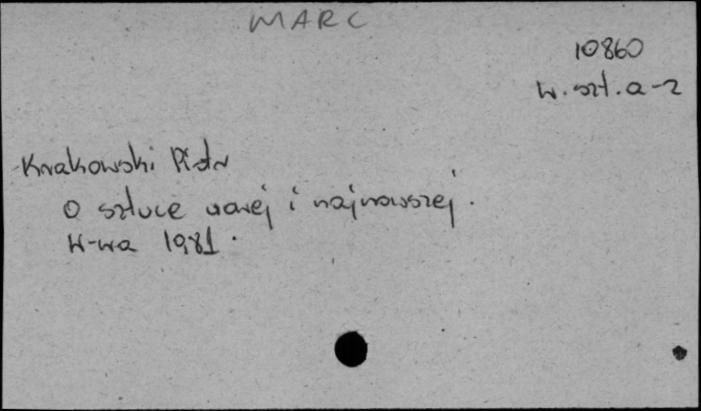 MARC
10860
W. szt. a-2
Krakowski Piotr
O sztuce nowej i najnowszej.
W-wa 1981.